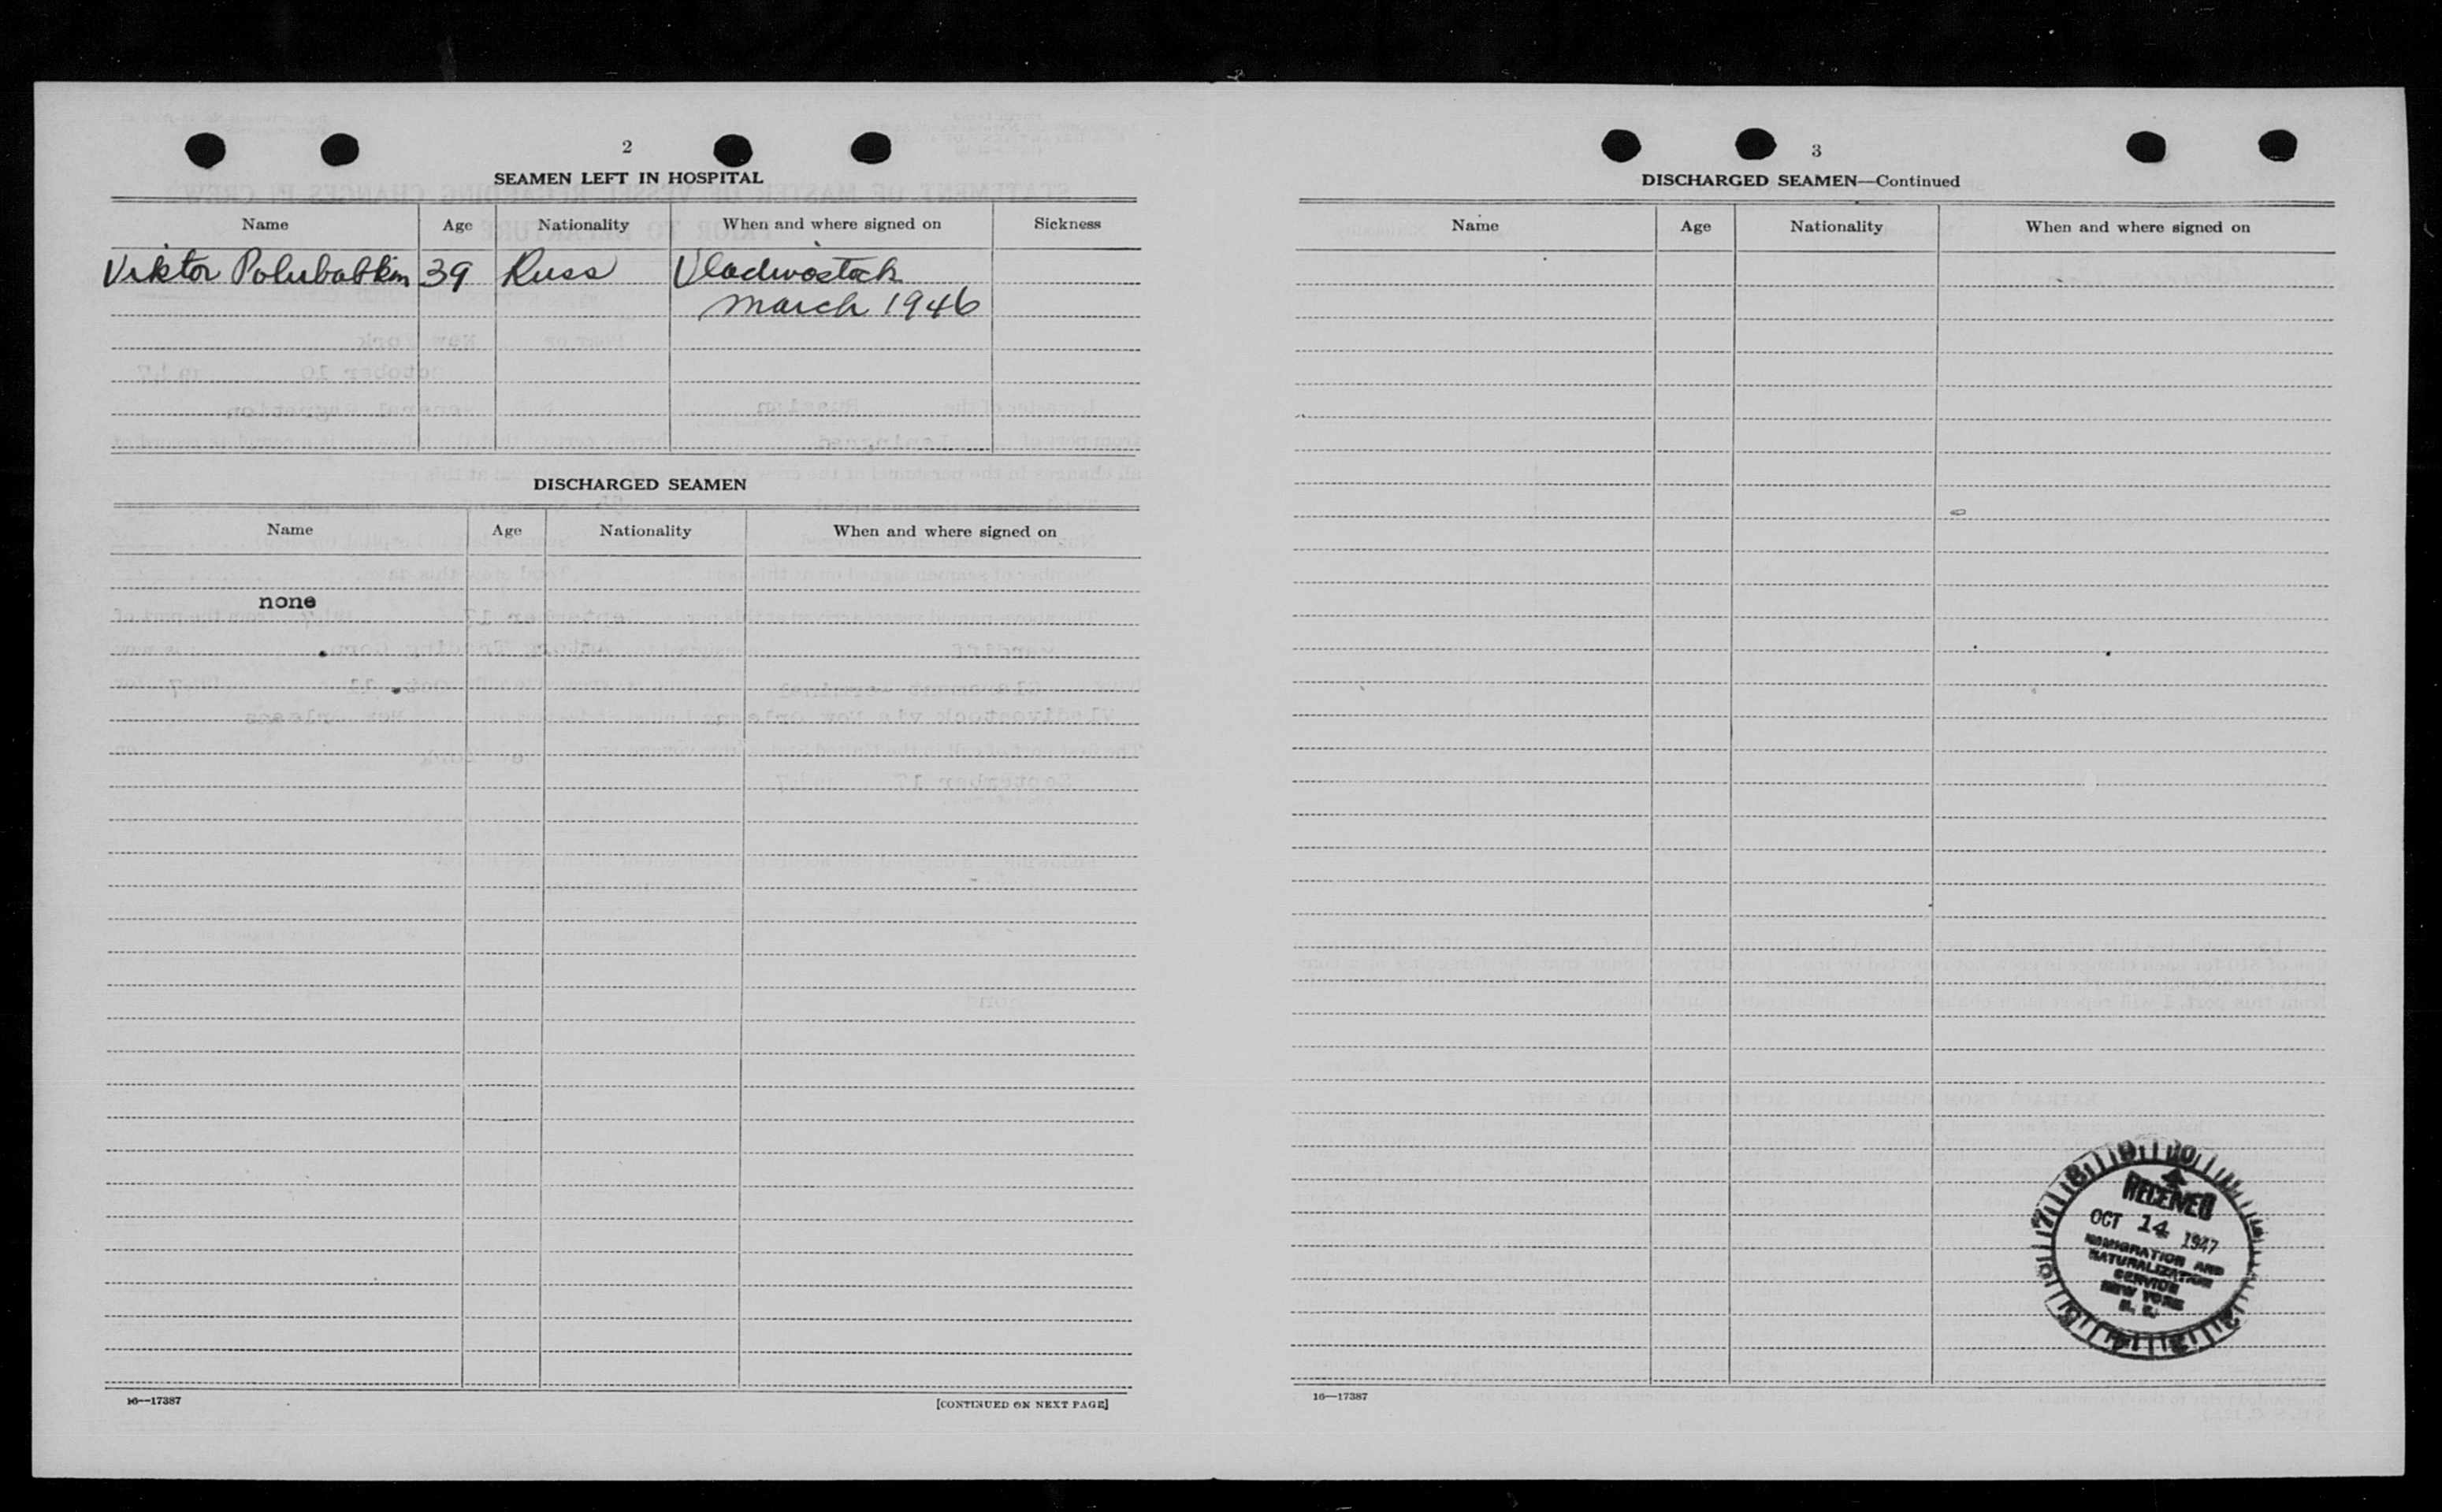 2
SEAMEN LEFT IN HOSPITAL
Name Age Nationality When and where signed on Sickness
Viktor Polubatkin 39 Russ Vladivostock
March 1946
DISCHARGED SEAMEN
Name Age Nationality When and where signed on
none
16—17387
[CONTINUED ON NEXT PAGE]
3
DISCHARGED SEAMEN—Continued
Name Age Nationality When and where signed on
RECEIVED
OCT 14 1947
IMMIGRATION AND
NATURALIZATION
SERVICE
NEW YORK
16—17387